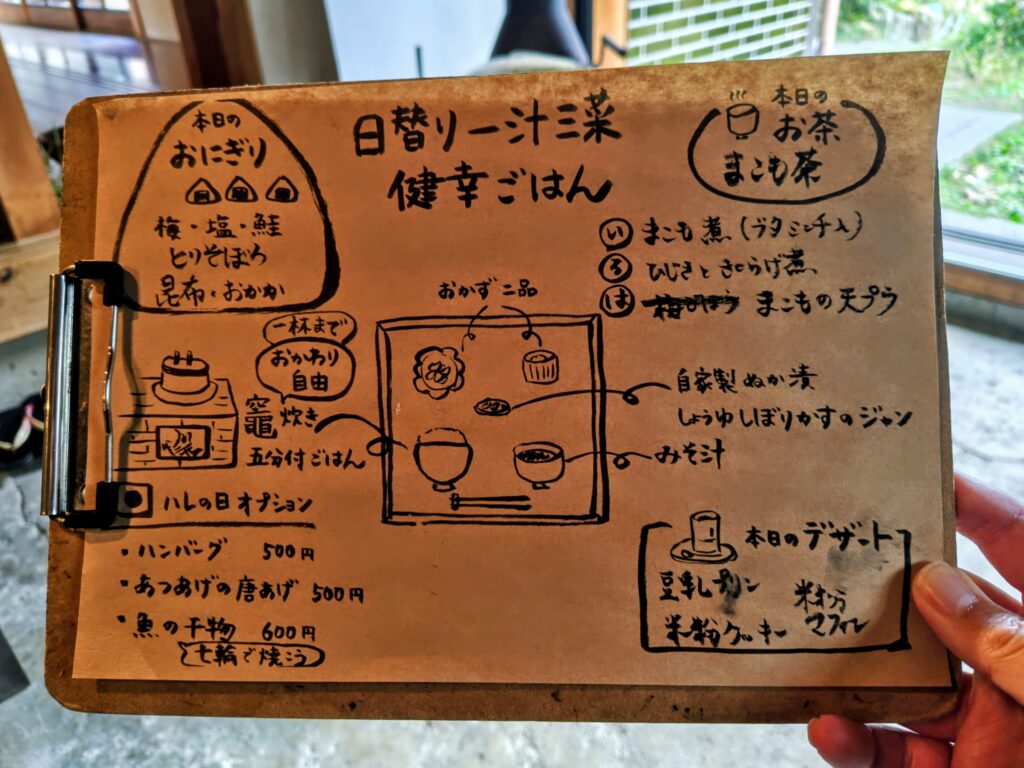 日替り一汁三菜
健幸ごはん
本日の
おにぎり
梅・塩・鮭
とりそぼろ
昆布・おかか
本日の
お茶
まこも茶
い まこも煮(ブタミンチ入)
ろ ひじきときくらげ煮
は まこもの天プラ
おかず二品
一杯まで
おかわり
自由
竈炊き
五分付ごはん
自家製ぬか漬
しょうゆしぼりかすのジャン
みそ汁
ハレの日オプション
・ハンバーグ 500円
・あつあげの唐あげ 500円
・魚の干物 600円
七輪で焼こう
本日のデザート
豆乳プリン
米粉クッキー
米粉
マフィン